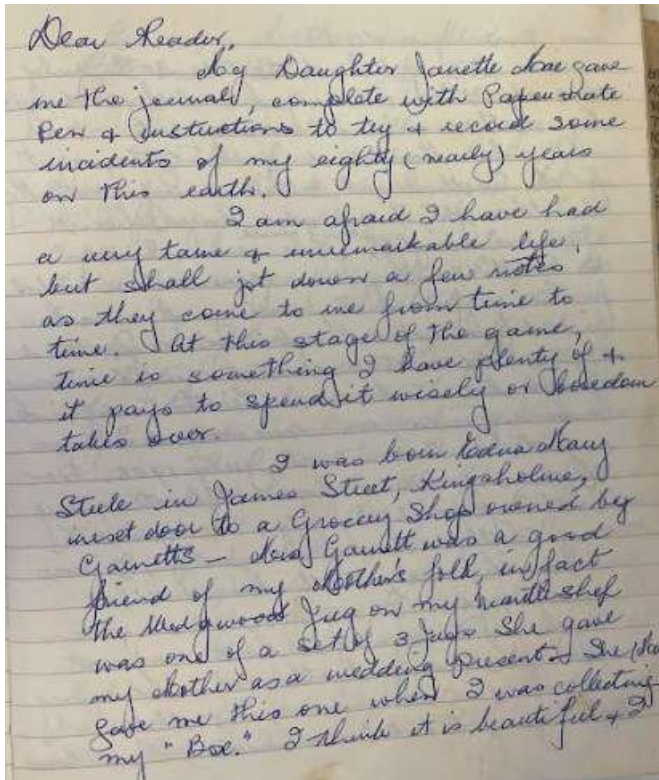 Dear Reader,
My Daughter Janette Mae gave
me the journal, complete with Papermate
Pen & instructions to try & record some
incidents of my eighty (nearly) years
on this earth.
I am afraid I have had
a very tame & unremarkable life,
but shall jot down a few notes
as they come to me from time to
time. At this stage of the game,
time is something I have plenty of &
it pays to spend it wisely or boredom
takes over.
I was born Edna Mary
Steele in James Street, Kingsholme,
next door to a Grocery Shop owned by
Garnetts — Mrs Garnett was a good
friend of my Mother's folk, in fact
the Wedgwood Jug on my mantle shef
was one of a set of 3 jugs She gave
my Mother as a wedding present. She
gave me this one when I was collecting
my "Box." I think it is beautiful & I